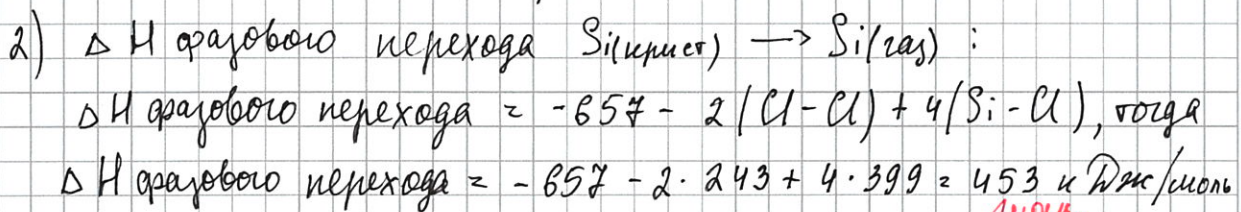 2) Δ H фазового перехода Si(крист) → Si(газ) :
Δ H фазового перехода = -657 - 2(Cl-Cl) + 4(Si-Cl), тогда
Δ H фазового перехода = -657 - 2·243 + 4·399 = 453 кДж/моль